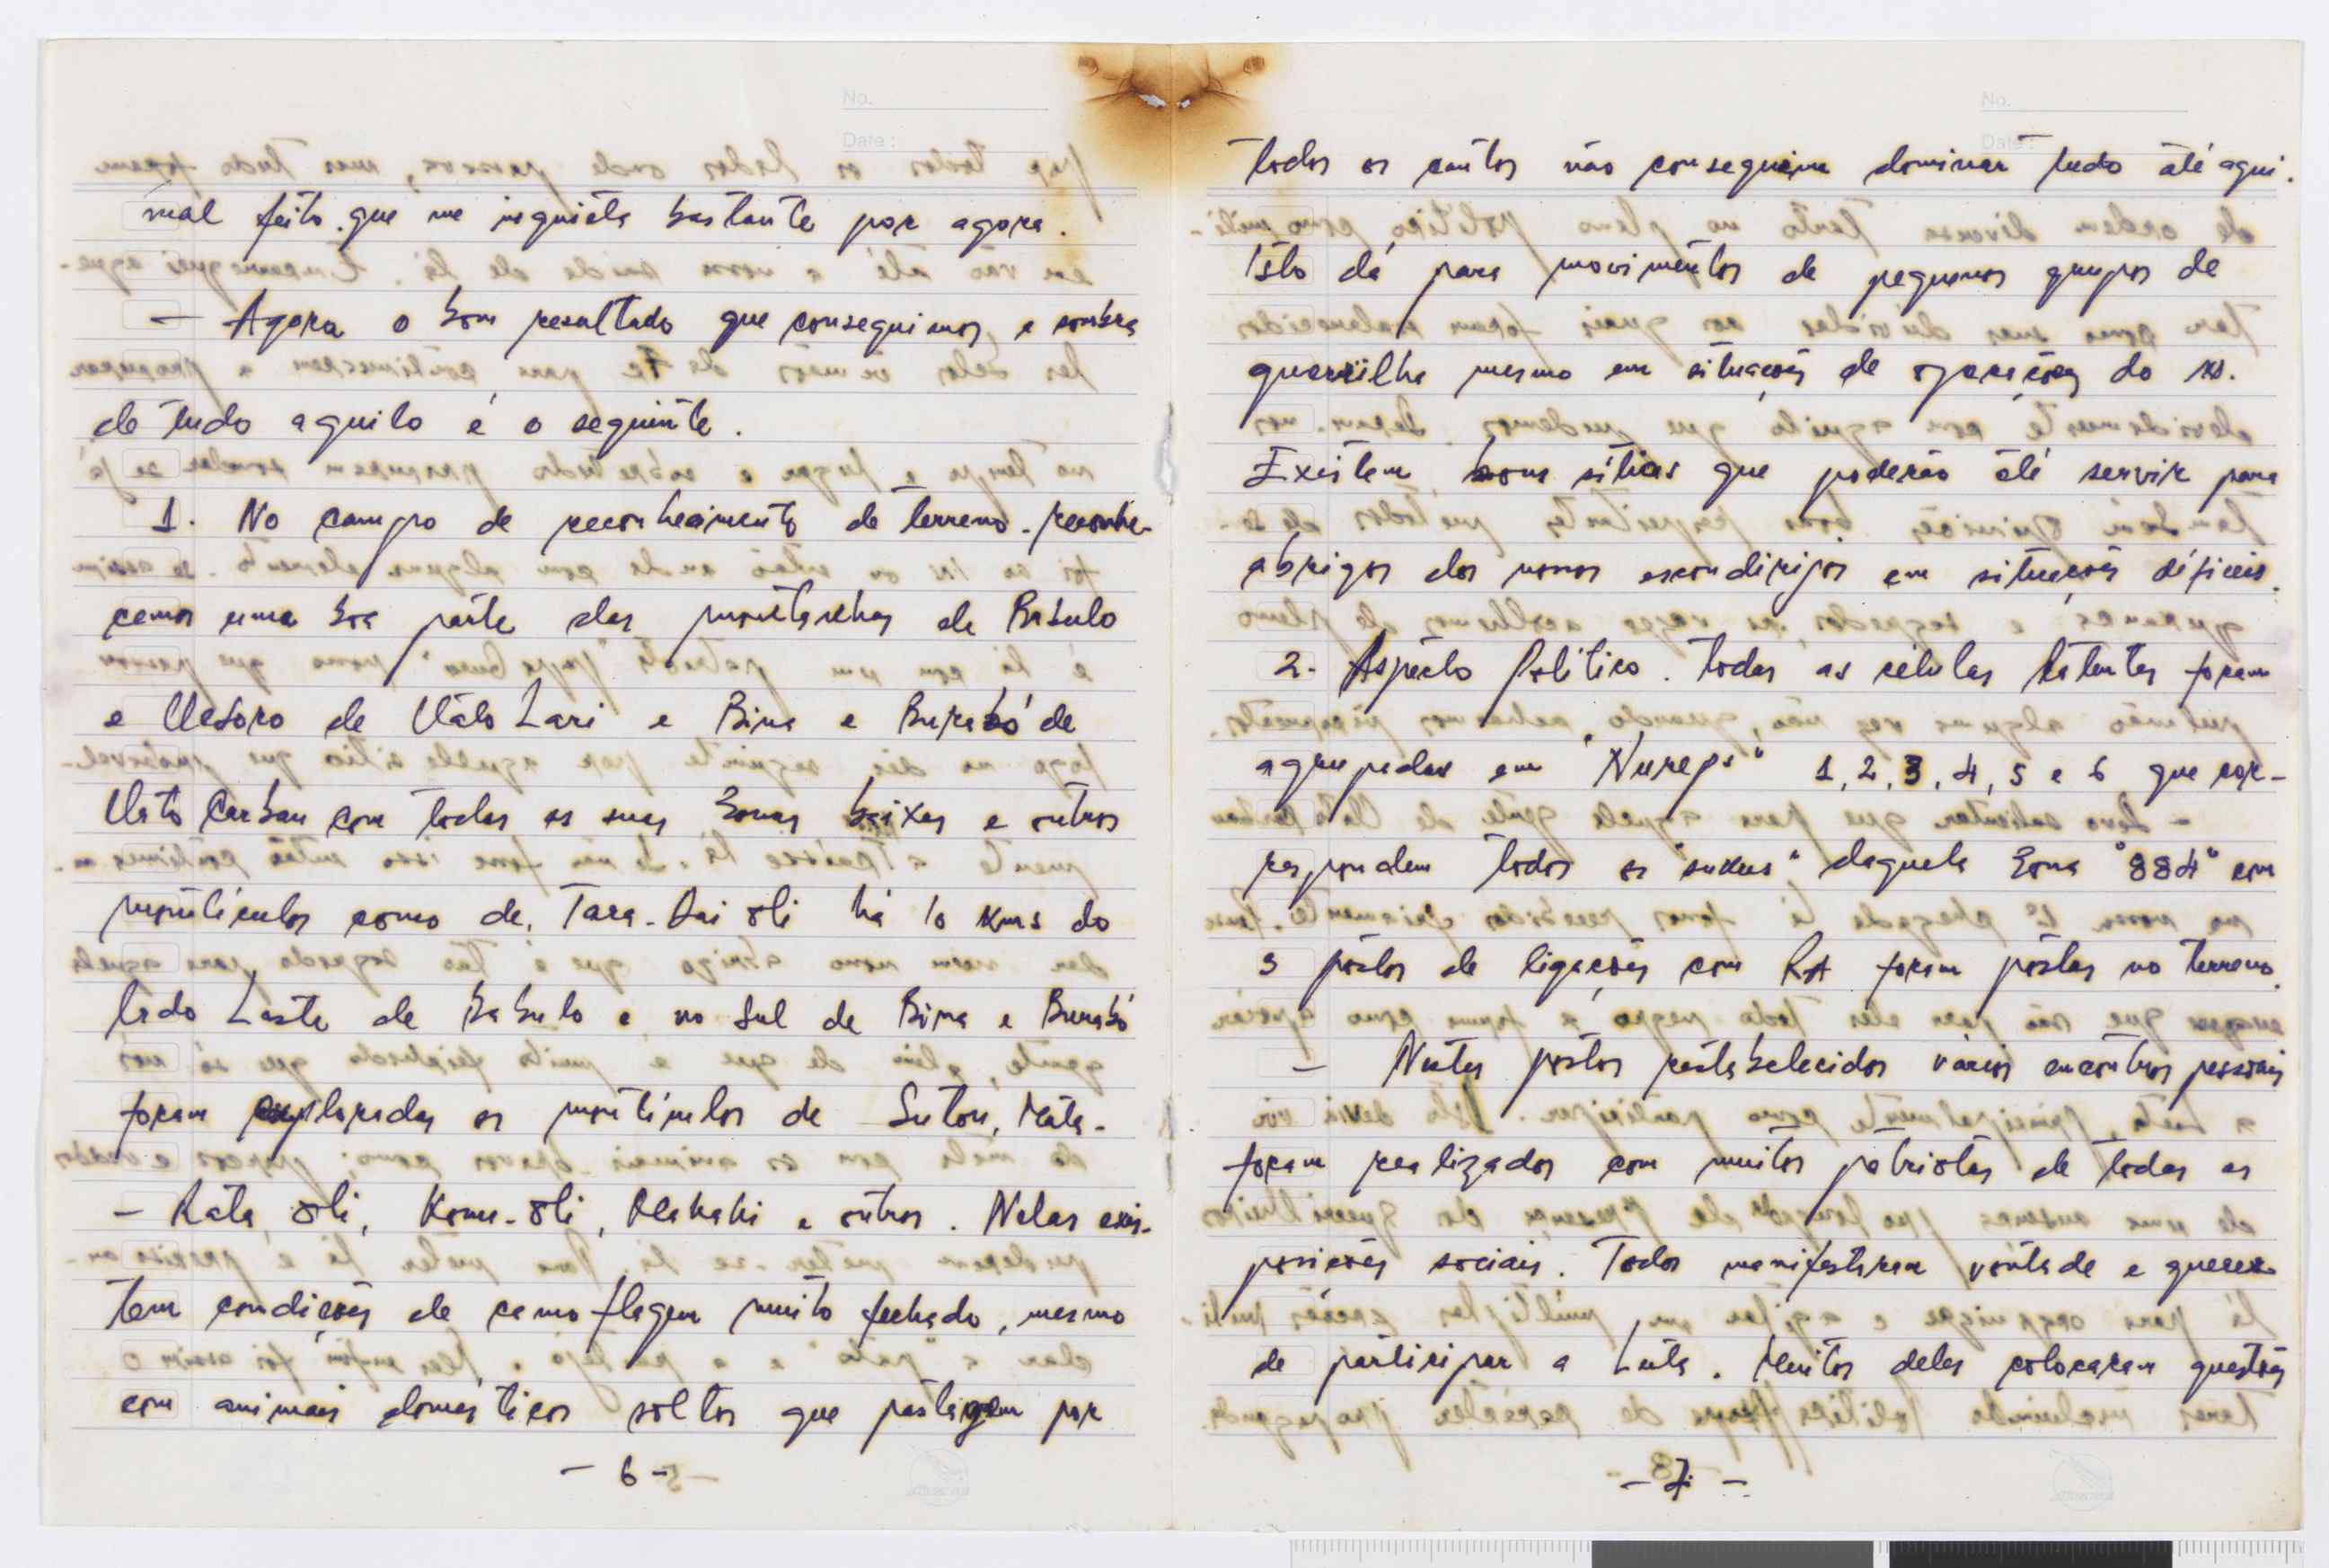 No.
Date :
mal feito. que me inquiéta bastante por agora.
— Agora o bom resultado que conseguimos, e sombra
de tudo aquilo é o seguinte.
1. No campo de reconhecimento de terreno. reconhe-
cemos uma boa parte das montanhas de Babulo
e Uesoro de Uato Lari e Bina e Burabó de
Uato Carbau com todas as suas Zonas baixas e outros
montículos como de, Tara-Dai oli há 10 Kms do
lado Laste de Babulo e no Sul de Bina e Burabó
foram exploradas os montículos de Sutou, Mata-
— Rata oli, Komu-oli, Olahahi e outros. Nelas exis-
tem condições de camoflagem muito fechado, mesmo
com animais domésticos soltos que pastagem por
- 6 -
No.
Date :
todos os cantos não conseguem dominar tudo até aqui.
Isto dá para movimentos de pequenos grupos de
guerrilha mesmo em situações de operações do
Existem bons sítios que poderão até servir para
abrigos dos nossos escondirijos em situações dificeis.
2- Aspecto Político. Todas as células latentes foram
agrupadas em "Nureps" 1, 2, 3, 4, 5 e 6 que cor-
respondem todos os "sukus" daquela Zona "884" com
3 póstos de ligações com foram póstos no terreno.
— Nestes postos restabelecidos vários encontros pessoais
foram realizados com muitos patriotas de todas as
posições sociais. Todos manifestaram vontade e querer
de participar a Luta. Muitos deles colocaram questões
- 7 -